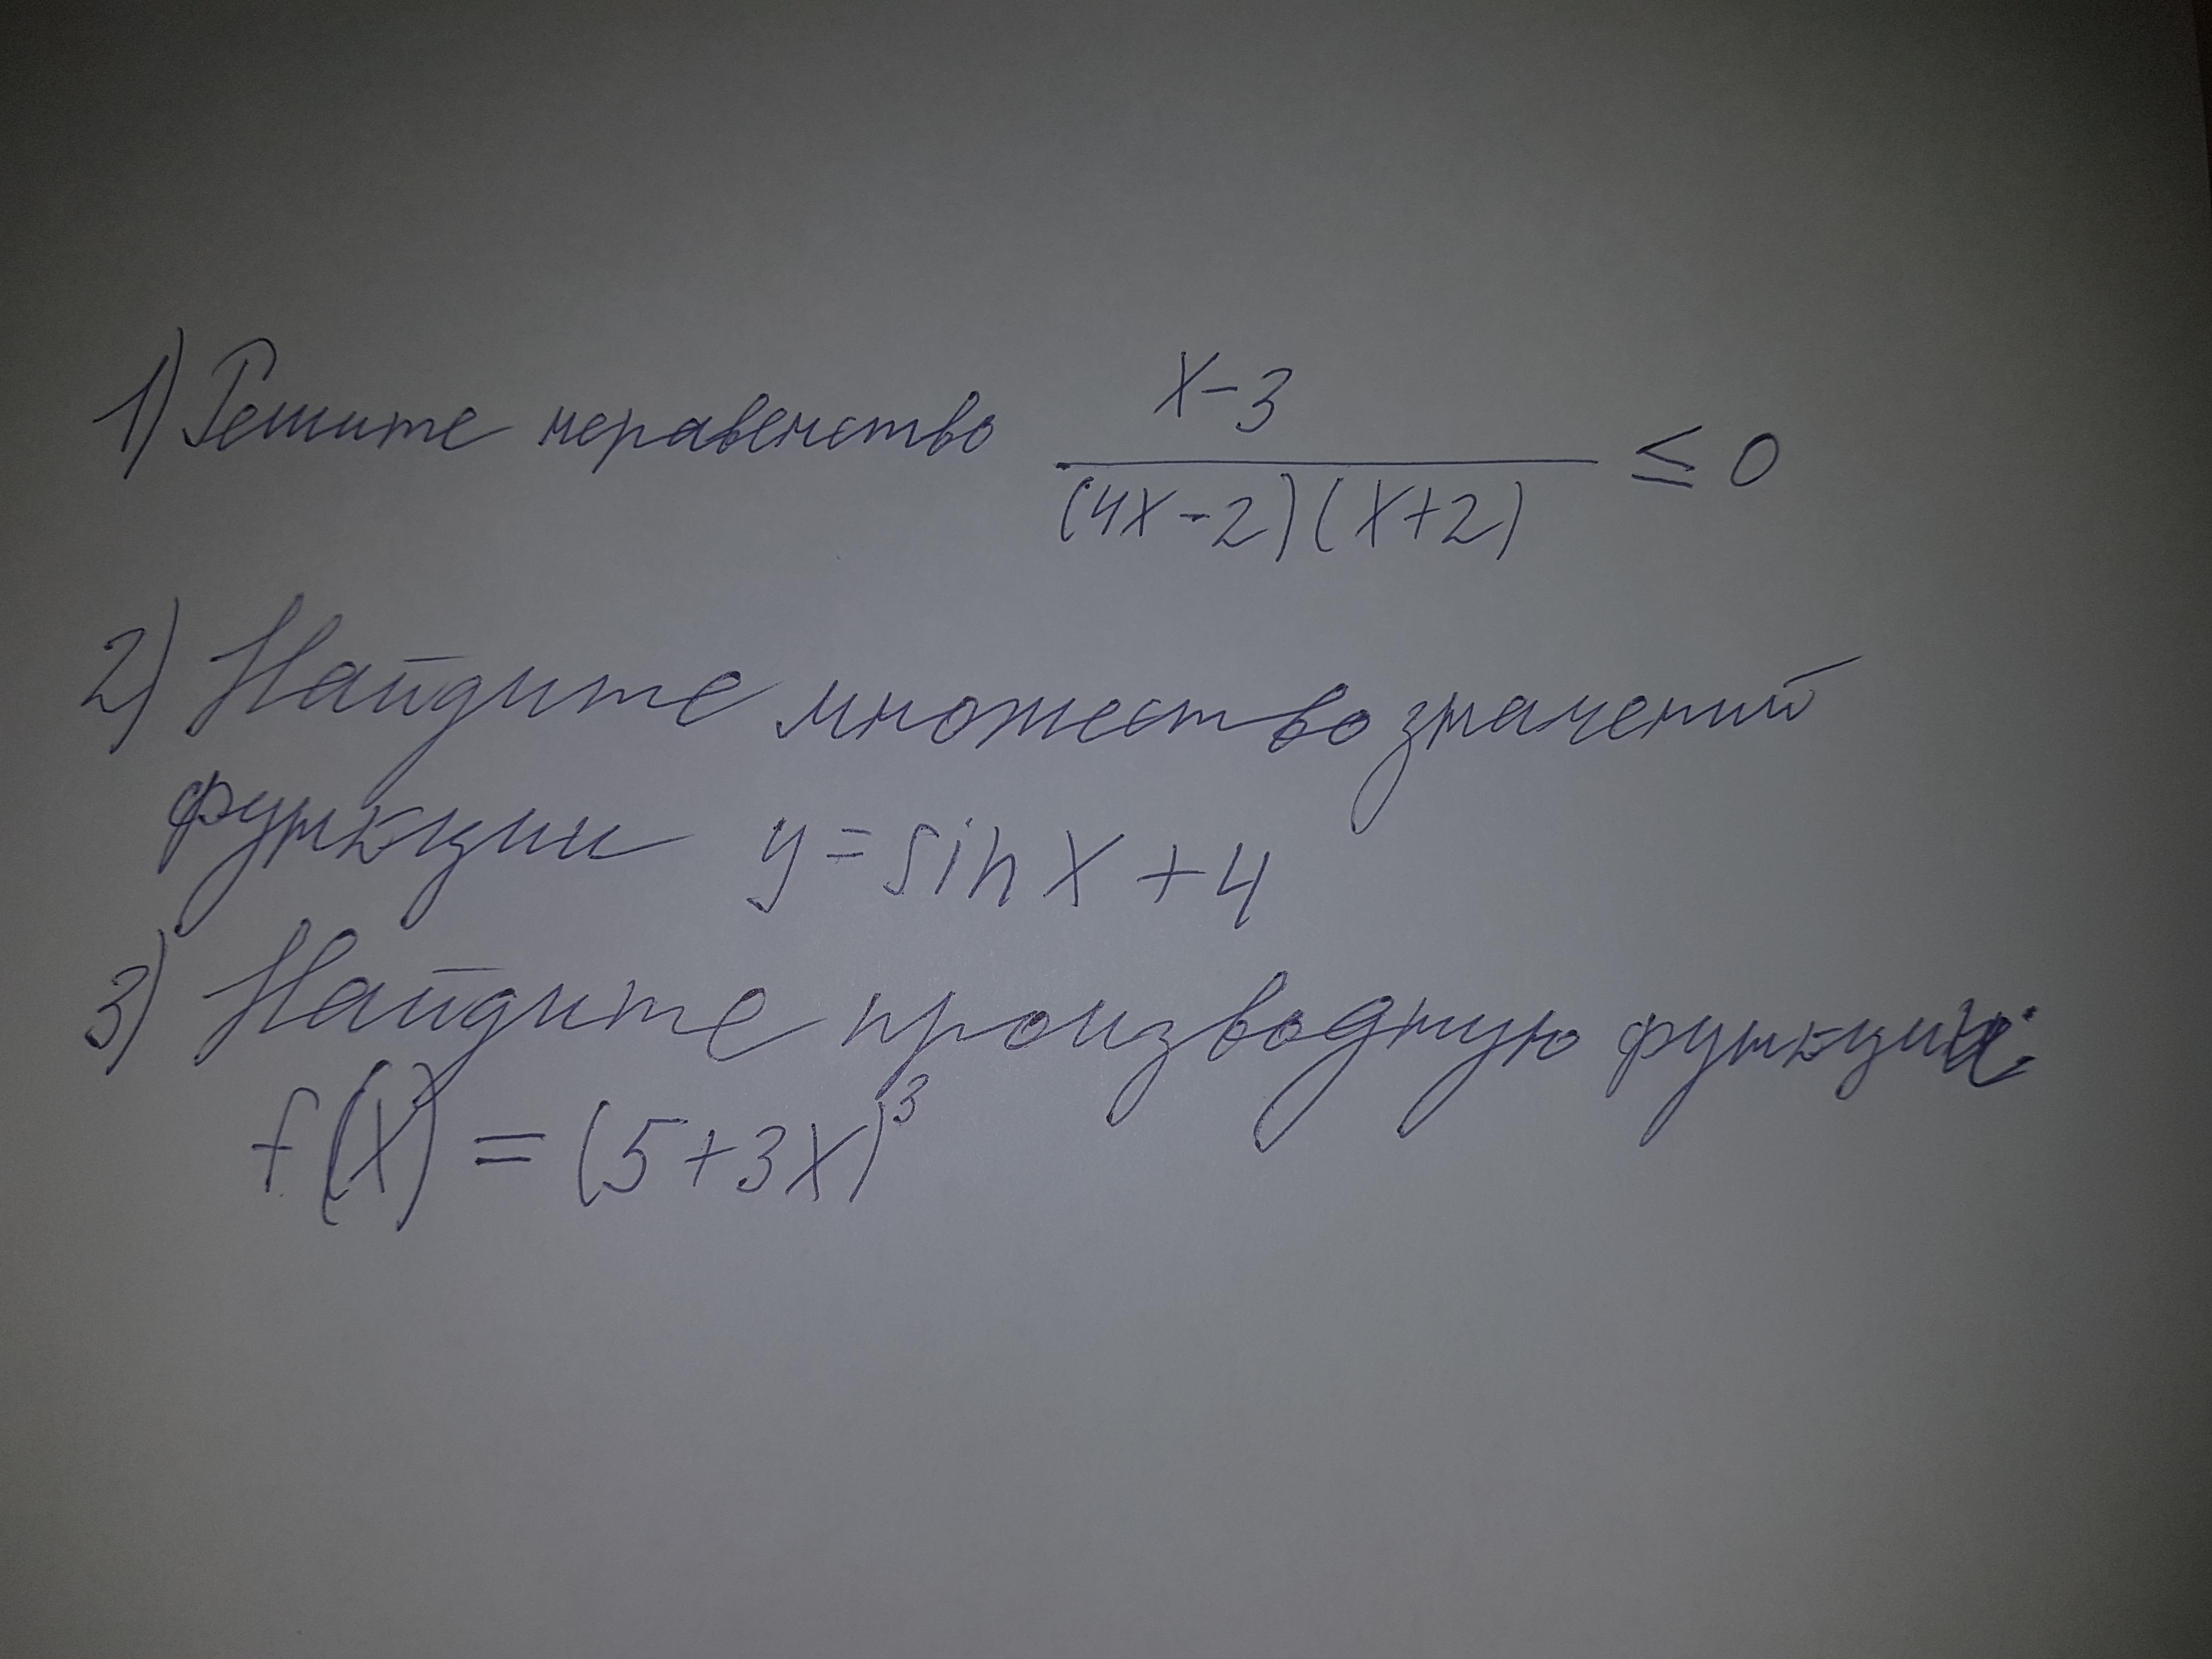 1) Решите неравенство (x-3)/((4x-2)(x+2)) ≤ 0
2) Найдите множество значений
функции y = sin x + 4
3) Найдите производную функции
f(x) = (5+3x)³